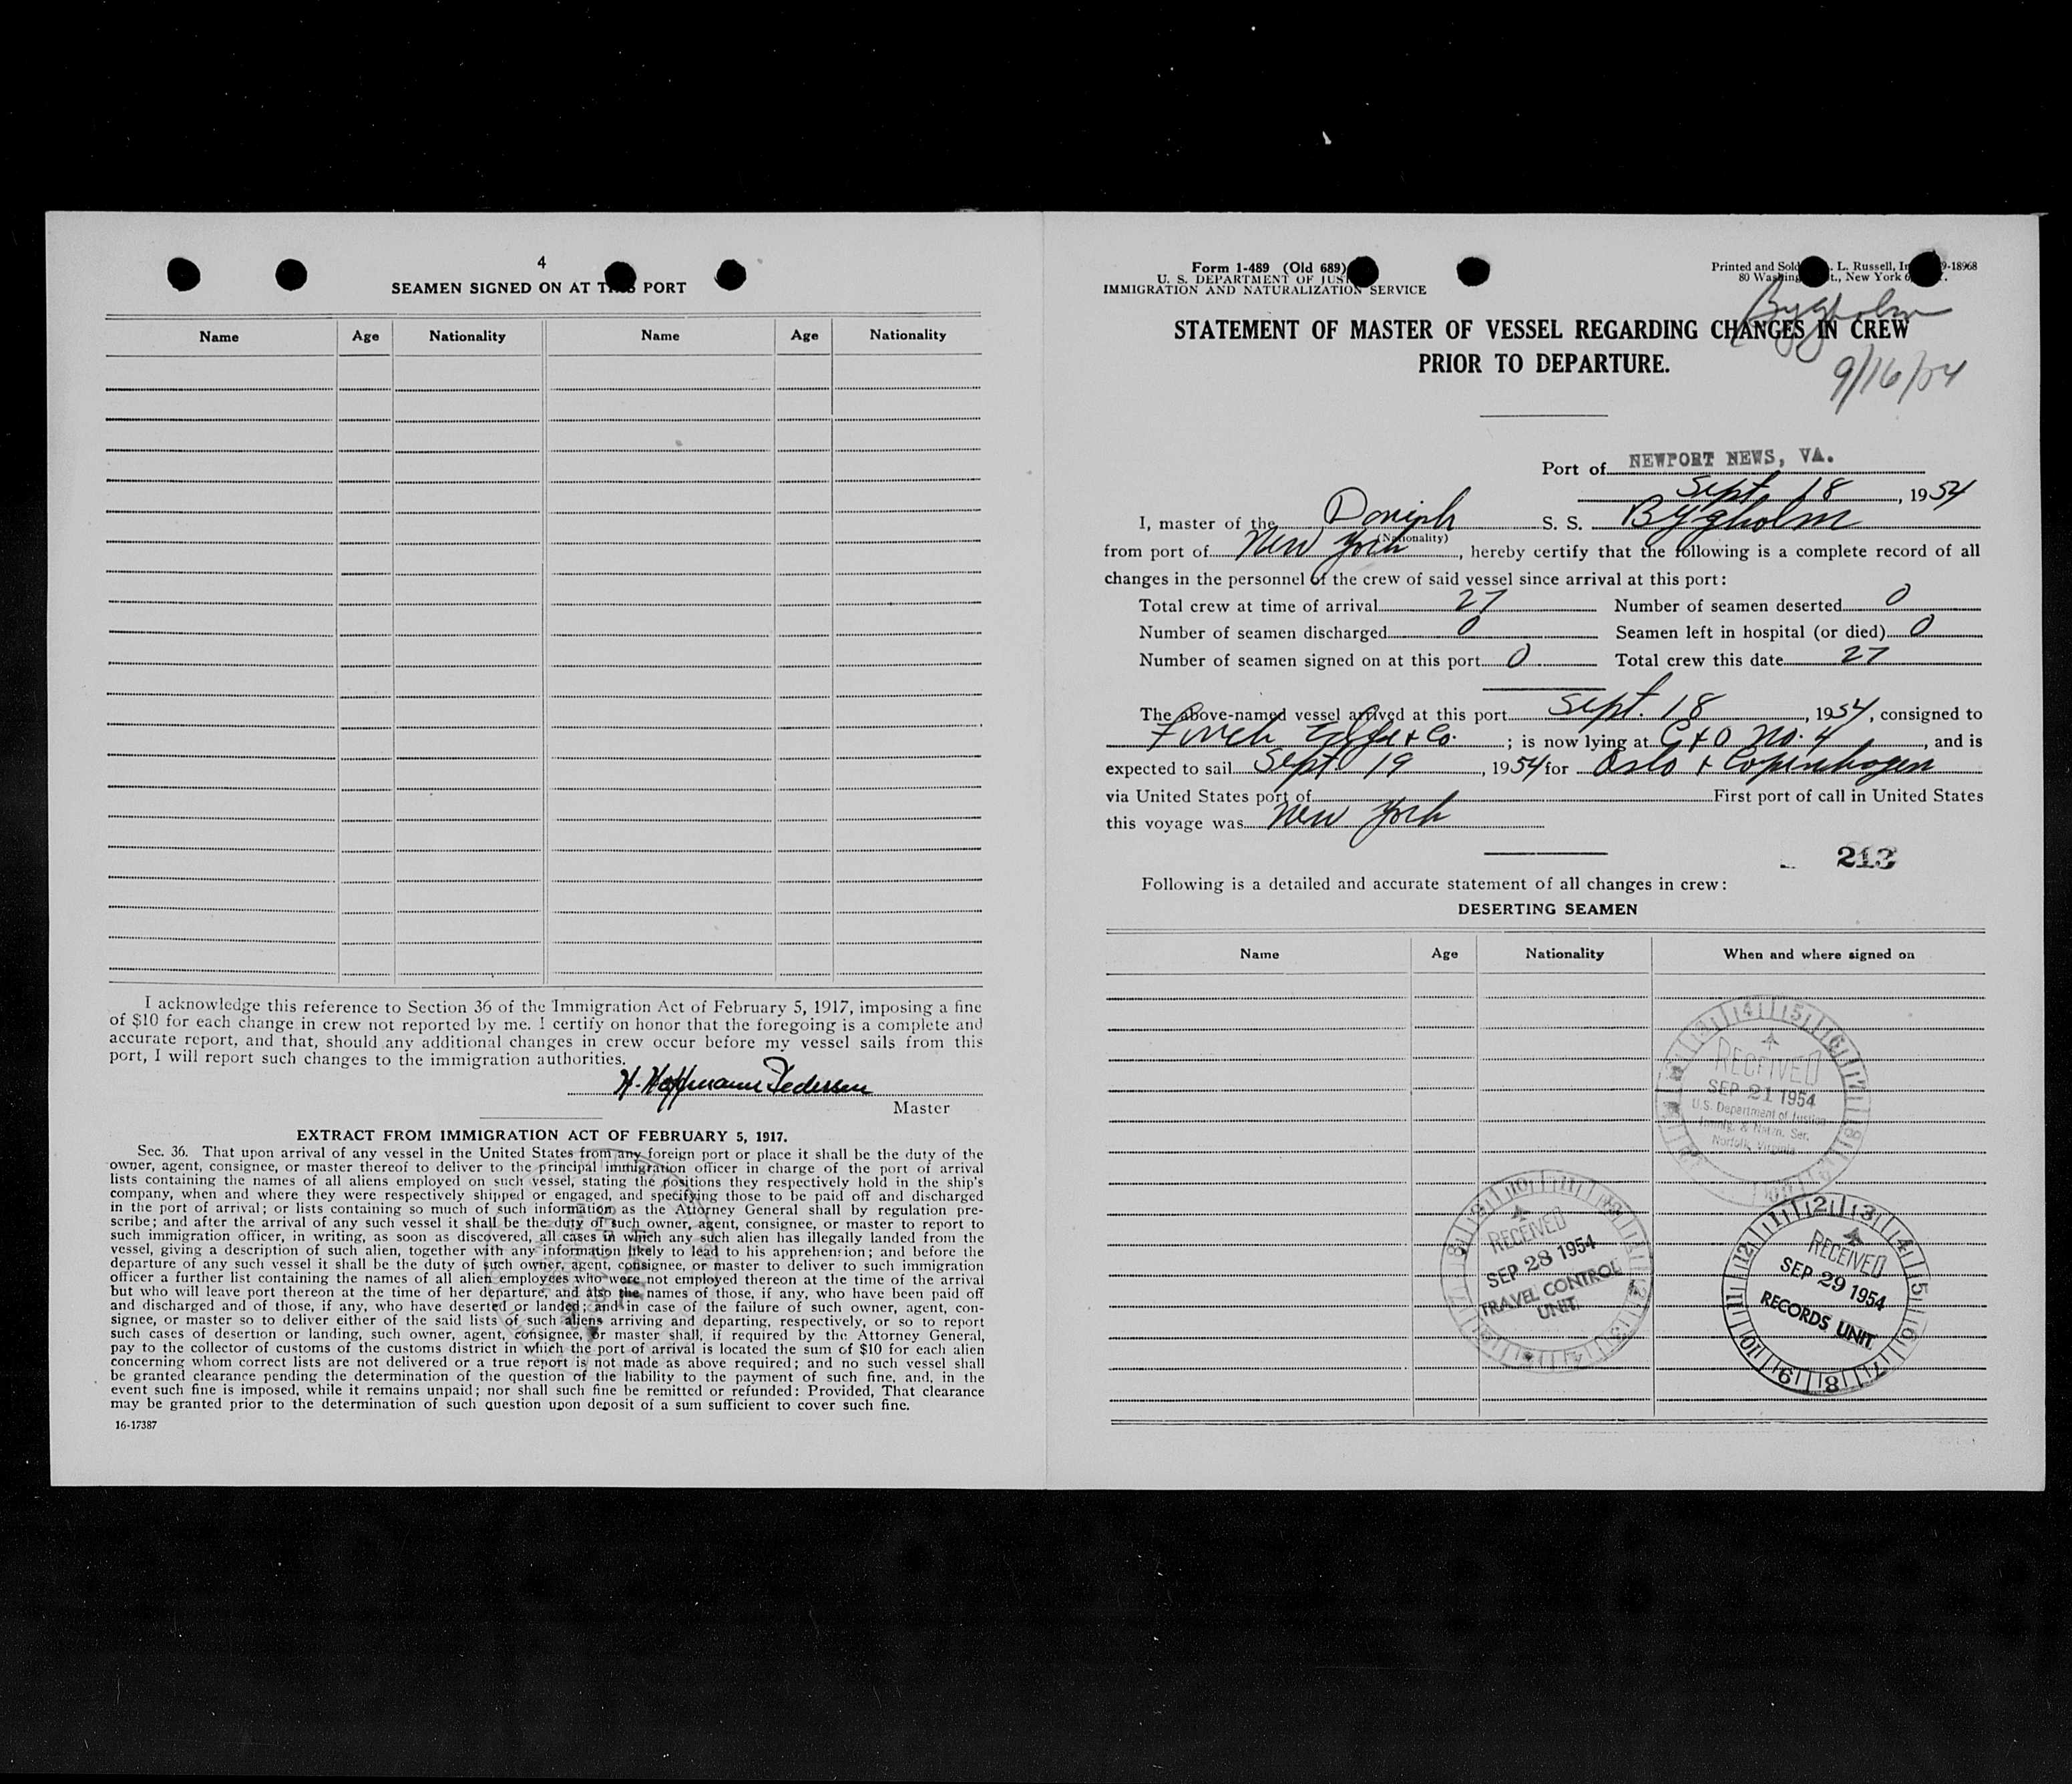 4
SEAMEN SIGNED ON AT THIS PORT
Name Age Nationality Name Age Nationality
I acknowledge this reference to Section 36 of the Immigration Act of February 5, 1917, imposing a fine
of $10 for each change in crew not reported by me. I certify on honor that the foregoing is a complete and
accurate report, and that, should any additional changes in crew occur before my vessel sails from this
port, I will report such changes to the immigration authorities.
H. Hoffmann Pedersen
Master
EXTRACT FROM IMMIGRATION ACT OF FEBRUARY 5, 1917.
Sec. 36. That upon arrival of any vessel in the United States from any foreign port or place it shall be the duty of the
owner, agent, consignee, or master thereof to deliver to the principal immigration officer in charge of the port of arrival
lists containing the names of all aliens employed on such vessel, stating the positions they respectively hold in the ship's
company, when and where they were respectively shipped or engaged, and specifying those to be paid off and discharged
in the port of arrival; or lists containing so much of such information as the Attorney General shall by regulation pre-
scribe; and after the arrival of any such vessel it shall be the duty of such owner, agent, consignee, or master to report to
such immigration officer, in writing, as soon as discovered, all cases in which any such alien has illegally landed from the
vessel, giving a description of such alien, together with any information likely to lead to his apprehension; and before the
departure of any such vessel it shall be the duty of such owner, agent, consignee, or master to deliver to such immigration
officer a further list containing the names of all alien employees who were not employed thereon at the time of the arrival
but who will leave port thereon at the time of her departure, and also the names of those, if any, who have been paid off
and discharged and of those, if any, who have deserted or landed; and in case of the failure of such owner, agent, con-
signee, or master so to deliver either of the said lists of such aliens arriving and departing, respectively, or so to report
such cases of desertion or landing, such owner, agent, consignee, or master shall, if required by the Attorney General,
pay to the collector of customs of the customs district in which the port of arrival is located the sum of $10 for each alien
concerning whom correct lists are not delivered or a true report is not made as above required; and no such vessel shall
be granted clearance pending the determination of the question of the liability to the payment of such fine, and, in the
event such fine is imposed, while it remains unpaid; nor shall such fine be remitted or refunded: Provided, That clearance
may be granted prior to the determination of such question upon deposit of a sum sufficient to cover such fine.
16-17387
Form 1-489 (Old 689)
U. S. DEPARTMENT OF JUS
IMMIGRATION AND NATURALIZATION SERVICE
Printed and Sold L. Russell, In 9-18968
80 Washing t., New York 6
Bygholm
9/16/54
STATEMENT OF MASTER OF VESSEL REGARDING CHANGES IN CREW
PRIOR TO DEPARTURE.
Port of NEWPORT NEWS, VA.
Sept 18, 1954
I, master of the Danish S. S. Bygholm
(Nationality)
from port of New York, hereby certify that the following is a complete record of all
changes in the personnel of the crew of said vessel since arrival at this port:
Total crew at time of arrival 27 Number of seamen deserted 0
Number of seamen discharged 0 Seamen left in hospital (or died) 0
Number of seamen signed on at this port 0 Total crew this date 27
The above-named vessel arrived at this port Sept. 18, 1954, consigned to
& Co. ; is now lying at C & O No. 4, and is
expected to sail Sept. 19, 1954 for Oslo & Copenhagen
via United States port of First port of call in United States
this voyage was New York
213
Following is a detailed and accurate statement of all changes in crew:
DESERTING SEAMEN
Name Age Nationality When and where signed on
RECEIVED
SEP 21 1954
U.S. Department of Justice
Immig. & Natzn. Ser.
Norfolk, Virginia
RECEIVED
SEP 28 1954
TRAVEL CONTROL
UNIT.
RECEIVED
SEP 29 1954
RECORDS UNIT.